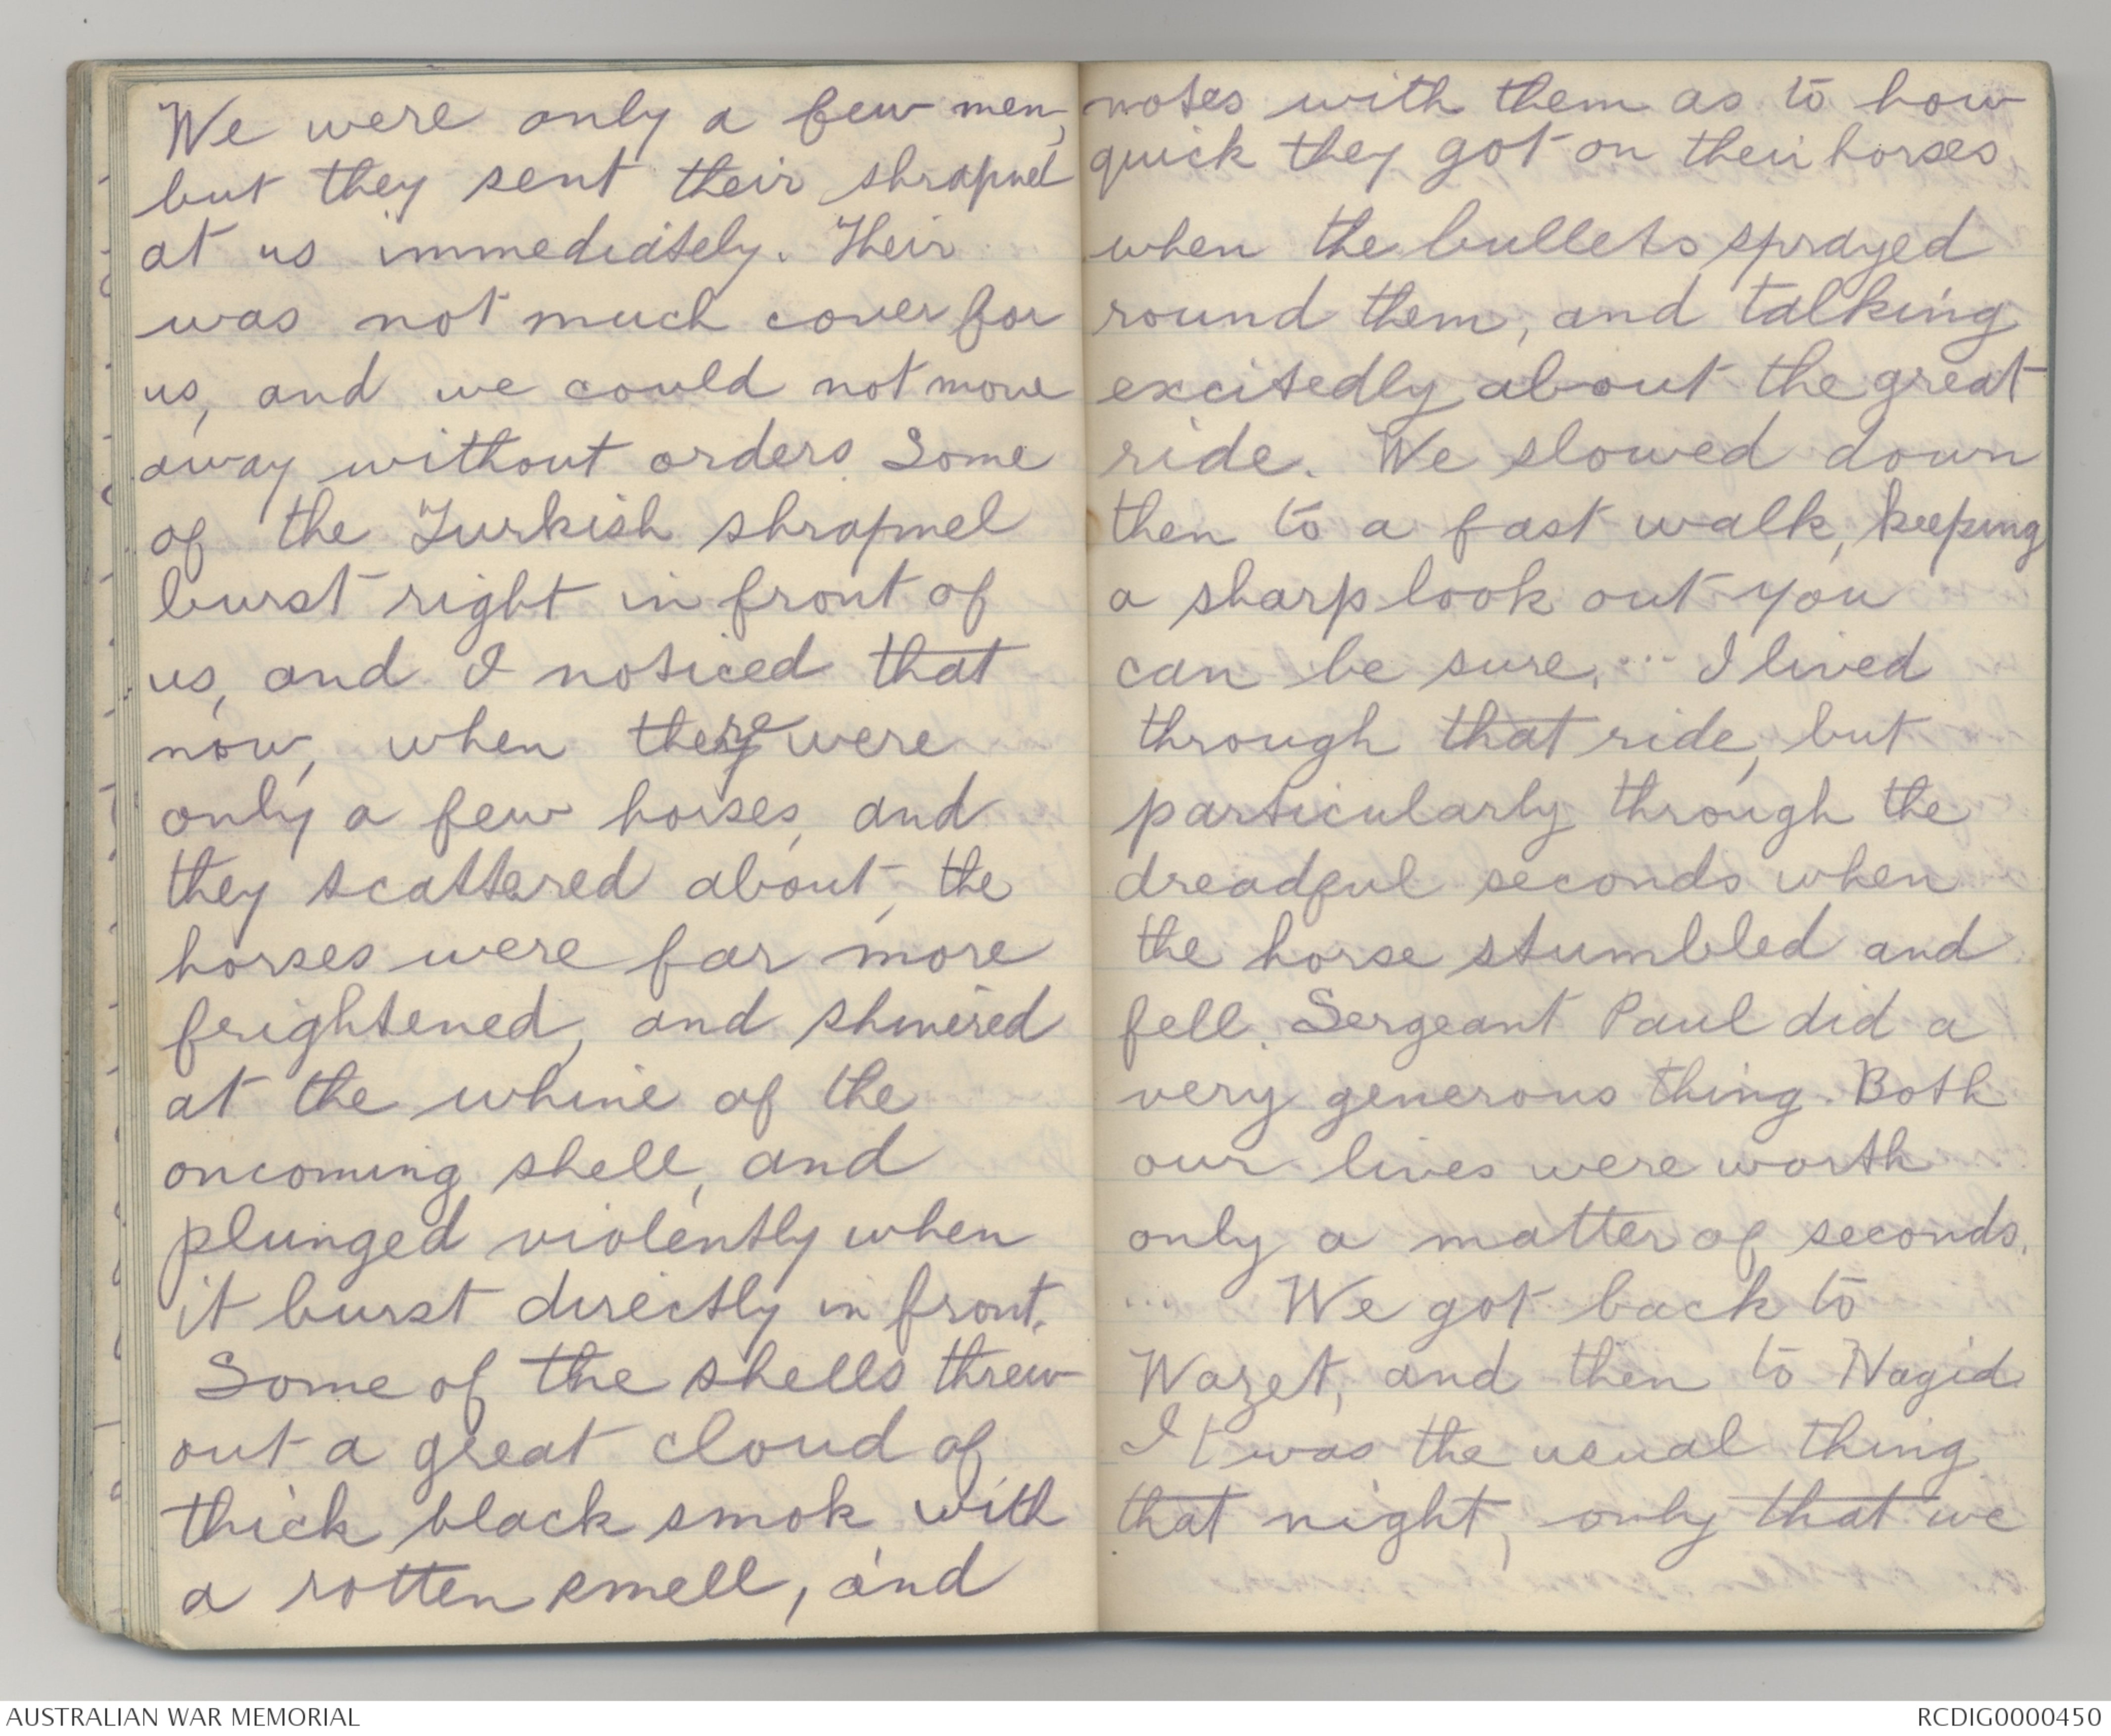 We were only a few men,
but they sent their shrapnel
at us immediately. Their
was not much cover for
us, and we could not move
away without orders. Some
of the Turkish shrapnel
burst right in front of
us, and I noticed that
now, when there were
only a few horses, and
they scattered about, the
horses were far more
frightened, and shivered
at the whine of the
oncoming shell, and
plunged violently when
it burst directly in front.
Some of the shells threw
out a great cloud of
thick black smok with
a rotten smell, and
notes with them as to how
quick they got on their horses
when the bullets sprayed
round them, and talking
excitedly about the great
ride. We slowed down
then to a fast walk, keeping
a sharp look out you
can be sure. ... I lived
through that ride, but
particularly through the
dreadful seconds when
the horse stumbled and
fell. Sergeant Paul did a
very generous thing. Both
our lives were worth
only a matter of seconds.
... We got back to
Wazet, and then to Nagid
It was the usual thing
that night, only that we
AUSTRALIAN WAR MEMORIAL
RCDIG0000450